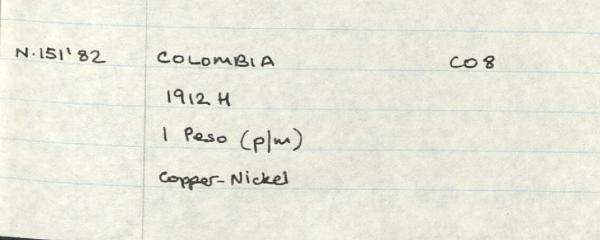 N.151'82 COLOMBIA CO8
1912 H
1 Peso (p/m)
Copper-Nickel